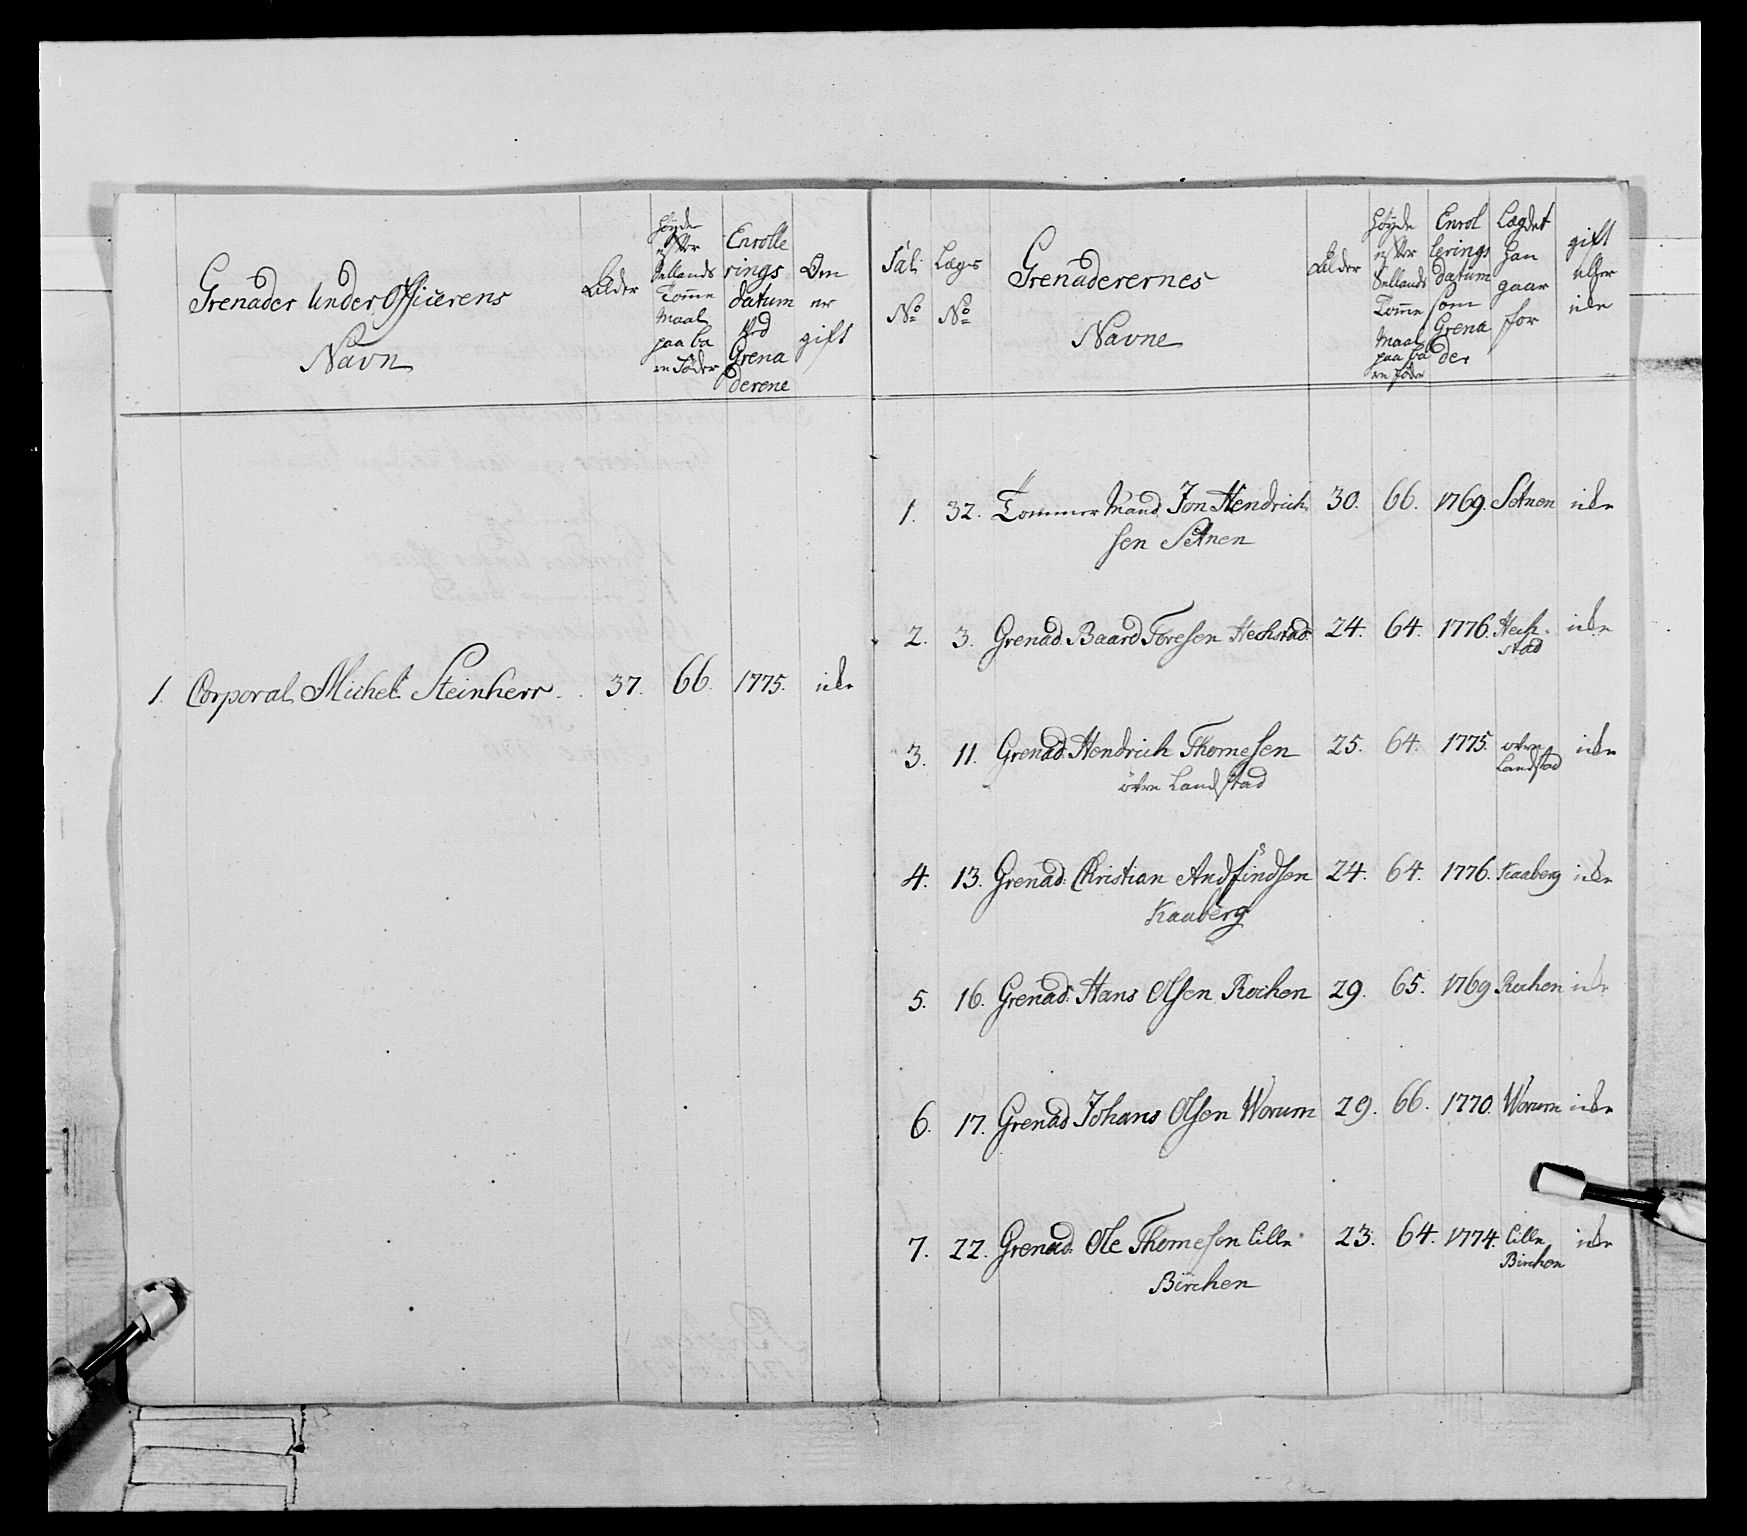 Grenader Under Officerens
Navn
Alder
Høyde
efter
Sellands
Tomme
Maal
paa ba
re Föder
Enrolle
rings
datum
ved
Grena
derene
Om
er
gift
1. Corporal Michel Steinherr. 37. 66. 1775. icke
Tal:
No
Lægs
No
Grenaderernes
Navne
Alder
Høyde
efter
Sellands
Tomme
Maal
paa ba
re föder
Enrol
lerings
datum
som
Grena
der
Lægdet
han
gaar
for
gift
eller
icke
1. 32. Tommer Mand Jon Hendrich 30. 66. 1769. Setnen icke
sen Setnen
2. 3. Grenad. Baard Toresen Hechstad 24. 64. 1776. Hech icke
stad
3. 11. Grenad. Hendrich Thomesen 25. 64. 1775. övre icke
övre Landstad Landstad
4. 13. Grenad: Christian Andfindsen 24. 64. 1776. Kaaberg icke
Kaaberg
5. 16. Grenad. Hans Olsen Rechen 29. 65. 1769 Rechen icke
6. 17. Grenad Johans Olsen Worum 29. 66. 1770. Worum icke
7. 22. Grenad. Ole Thomesen Lille 23. 64. 1774. Lille icke
Birchen Birchen